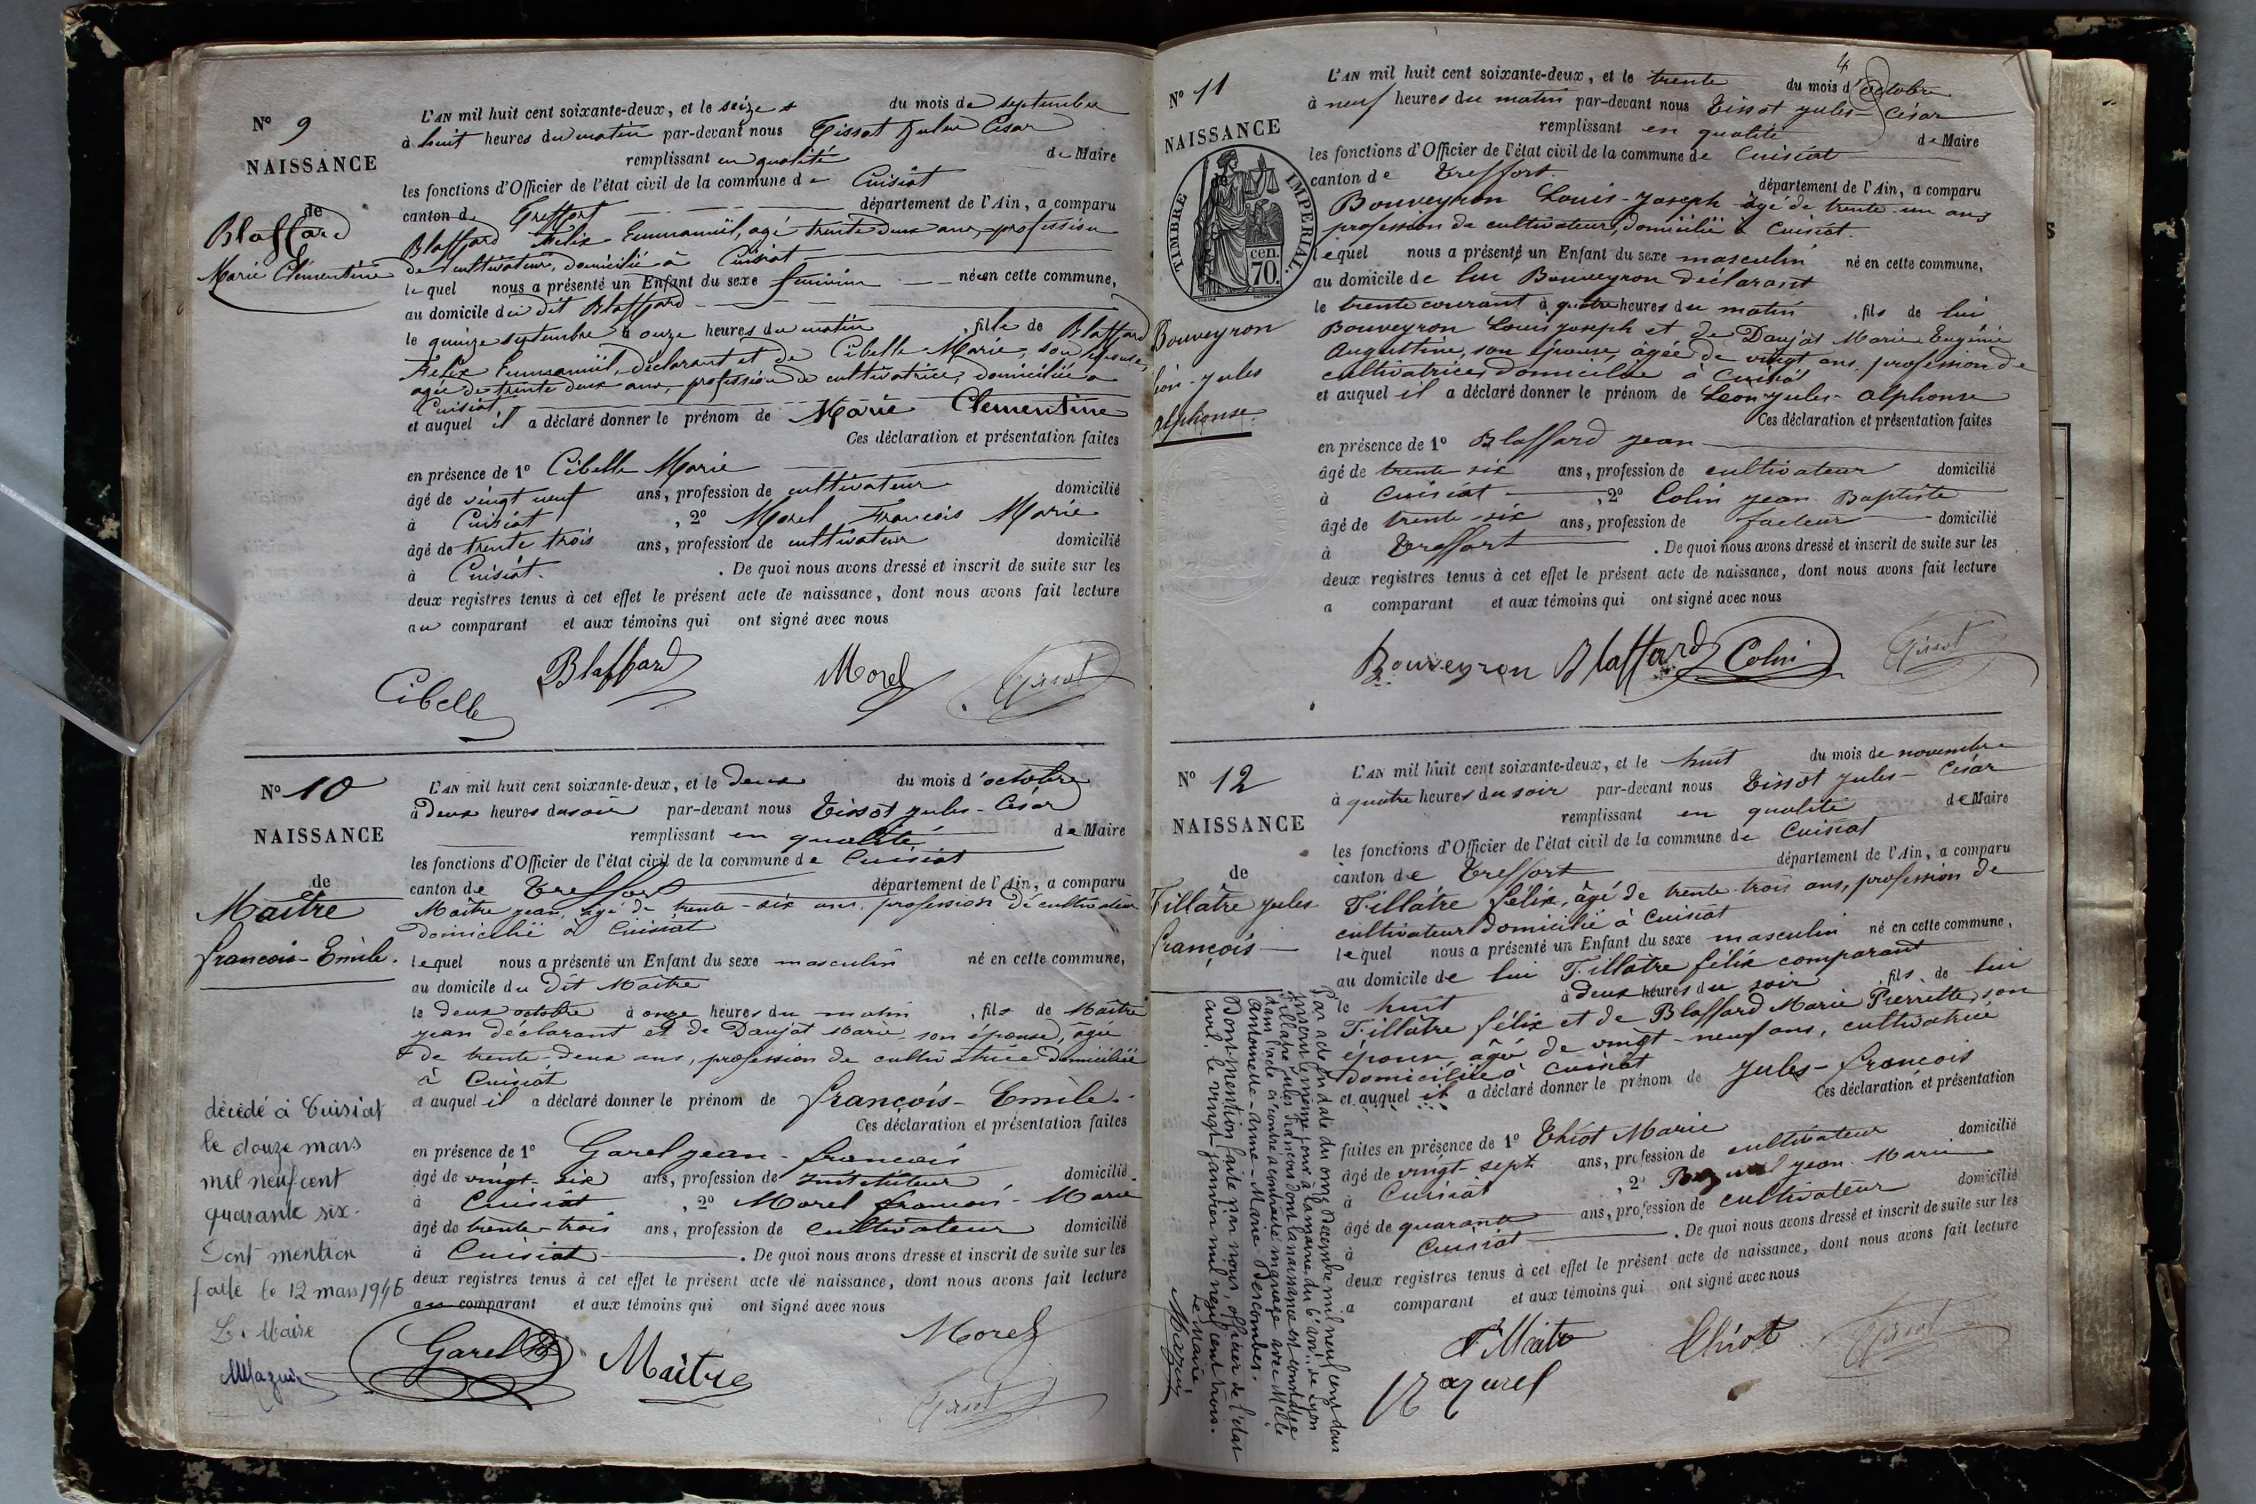 N° 9
NAISSANCE
de
Blaffard
Marie Clémentine
L'AN mil huit cent soixante-deux, et le seize du mois de septembre
à huit heures du matin par-devant nous Tissot Jules César
remplissant en qualité de Maire
les fonctions d'Officier de l'état civil de la commune de Cuisiat
canton de Treffort département de l'Ain, a comparu
Blaffard Félix Emmanuël, agé trente deux ans, profession
de cultivateur, domicilié à Cuisiat
lequel nous a présenté un Enfant du sexe féminin né en cette commune,
au domicile du dit Blaffard
le quinze septembre à onze heures du matin, fille de Blaffard
Félix Emmanuël, déclarant et de Cibelle Marie, son épouse,
agée de trente deux ans, profession de cultivatrice, domiciliée à
Cuisiat,
et auquel il a déclaré donner le prénom de Marie Clementine
Ces déclaration et présentation faites
en présence de 1° Cibelle Marie
âgé de vingt neuf ans, profession de cultivateur domicilié
à Cuisiat, 2° Morel François Marie
âgé de trente trois ans, profession de cultivateur domicilié
à Cuisiat. De quoi nous avons dressé et inscrit de suite sur les
deux registres tenus à cet effet le présent acte de naissance, dont nous avons fait lecture
au comparant et aux témoins qui ont signé avec nous
Cibelle Blaffard Morel Tissot
N° 10
NAISSANCE
de
Maître
françois-Emile.
L'AN mil huit cent soixante-deux, et le deux du mois d'octobre
à deux heures du soir par-devant nous Tissot jules-César
remplissant en qualité de Maire
les fonctions d'Officier de l'état civil de la commune de Cuisiat
canton de Treffort département de l'Ain, a comparu
Maître jean, âgé de trente-six ans, profession de cultivateur
domicilié à Cuisiat
lequel nous a présenté un Enfant du sexe masculin né en cette commune,
au domicile du dit Maître
le deux octobre à onze heures du matin, fils de Maître
jean déclarant et de Daujat Marie, son épouse, âgée
de trente-deux ans, profession de cultivatrice domiciliée
à Cuisiat
et auquel il a déclaré donner le prénom de françois-Emile.
Ces déclaration et présentation faites
en présence de 1° Garel jean-françois
âgé de vingt-six ans, profession de Instituteur domicilié
à Cuisiat, 2° Morel françois-Marie
âgé de trente-trois ans, profession de cultivateur domicilié
à Cuisiat. De quoi nous avons dressé et inscrit de suite sur les
deux registres tenus à cet effet le présent acte de naissance, dont nous avons fait lecture
au comparant et aux témoins qui ont signé avec nous
Garel Maître Morel
Tissot
décédé à Cuisiat
le douze mars
mil neuf cent
quarante six.
Dont mention
faite le 12 mars 1946
Le Maire
4
N° 11
NAISSANCE
TIMBRE IMPÉRIAL.
cen.
70.
Bouveyron
léon-jules
alphonse.
L'AN mil huit cent soixante-deux, et le trente du mois d'octobre
à neuf heures du matin par-devant nous Tissot jules-César
remplissant en qualité de Maire
les fonctions d'Officier de l'état civil de la commune de Cuisiat
canton de Treffort. département de l'Ain, a comparu
Bouveyron Louis-Joseph âgé de trente-un ans
profession de cultivateur, domicilié à Cuisiat.
lequel nous a présenté un Enfant du sexe masculin né en cette commune,
au domicile de lui Bouveyron déclarant
le trente courant à quatre heures du matin, fils de lui
Bouveyron Louis joseph et de Daujat Marie Eugénie
Augustine, son épouse, âgée de vingt ans, profession de
cultivatrice, domiciliée à Cuisiat
et auquel il a déclaré donner le prénom de Léon-jules-alphonse
Ces déclaration et présentation faites
en présence de 1° Blaffard jean
âgé de trente six ans, profession de cultivateur domicilié
à Cuisiat, 2° Colin jean Baptiste
âgé de trente-six ans, profession de facteur domicilié
à Treffort. De quoi nous avons dressé et inscrit de suite sur les
deux registres tenus à cet effet le présent acte de naissance, dont nous avons fait lecture
a comparant et aux témoins qui ont signé avec nous
Bouveyron Blaffard Colin Tissot
N° 12
NAISSANCE
de
Tillâtre jules
françois
L'AN mil huit cent soixante-deux, et le huit du mois de novembre
à quatre heures du soir par-devant nous Tissot jules-César
remplissant en qualité de Maire
les fonctions d'Officier de l'état civil de la commune de Cuisiat
canton de Treffort département de l'Ain, a comparu
Tillâtre félix, âgé de trente-trois ans, profession de
cultivateur domicilié à Cuisiat
lequel nous a présenté un Enfant du sexe masculin né en cette commune,
au domicile de lui Tillâtre félix comparant
le huit à deux heures du soir, fils de lui
Tillâtre félix et de Blaffard Marie Pierrette, son
épouse, âgée de vingt-neuf ans, cultivatrice
domiciliée à Cuisiat
et auquel il a déclaré donner le prénom de jules-françois
Ces déclaration et présentation
faites en présence de 1° Thiot Marie
âgé de vingt sept ans, profession de cultivateur domicilié
à Cuisiat, 2° jean-Marie
âgé de quarante ans, profession de cultivateur domicilié
à Cuisiat. De quoi nous avons dressé et inscrit de suite sur les
deux registres tenus à cet effet le présent acte de naissance, dont nous avons fait lecture
a comparant et aux témoins qui ont signé avec nous
Thiot Tissot
Par acte en date du onze Décembre mil neuf cent deux
inscrit le même jour à la mairie du 6e arrt de Lyon
Tillatre jules françois dont la naissance est constatée
dans l'acte ci contre a contracté mariage avec Melle
Antoinette-Anne-Marie Descombes.
Dont mention faite par nous, officier de l'état
civil, le vingt janvier mil neuf cent trois.
Le Maire,